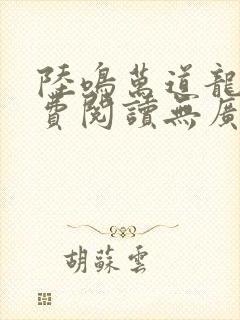 陸鳴萬道龍
費閱讀無廣
胡蘇雲